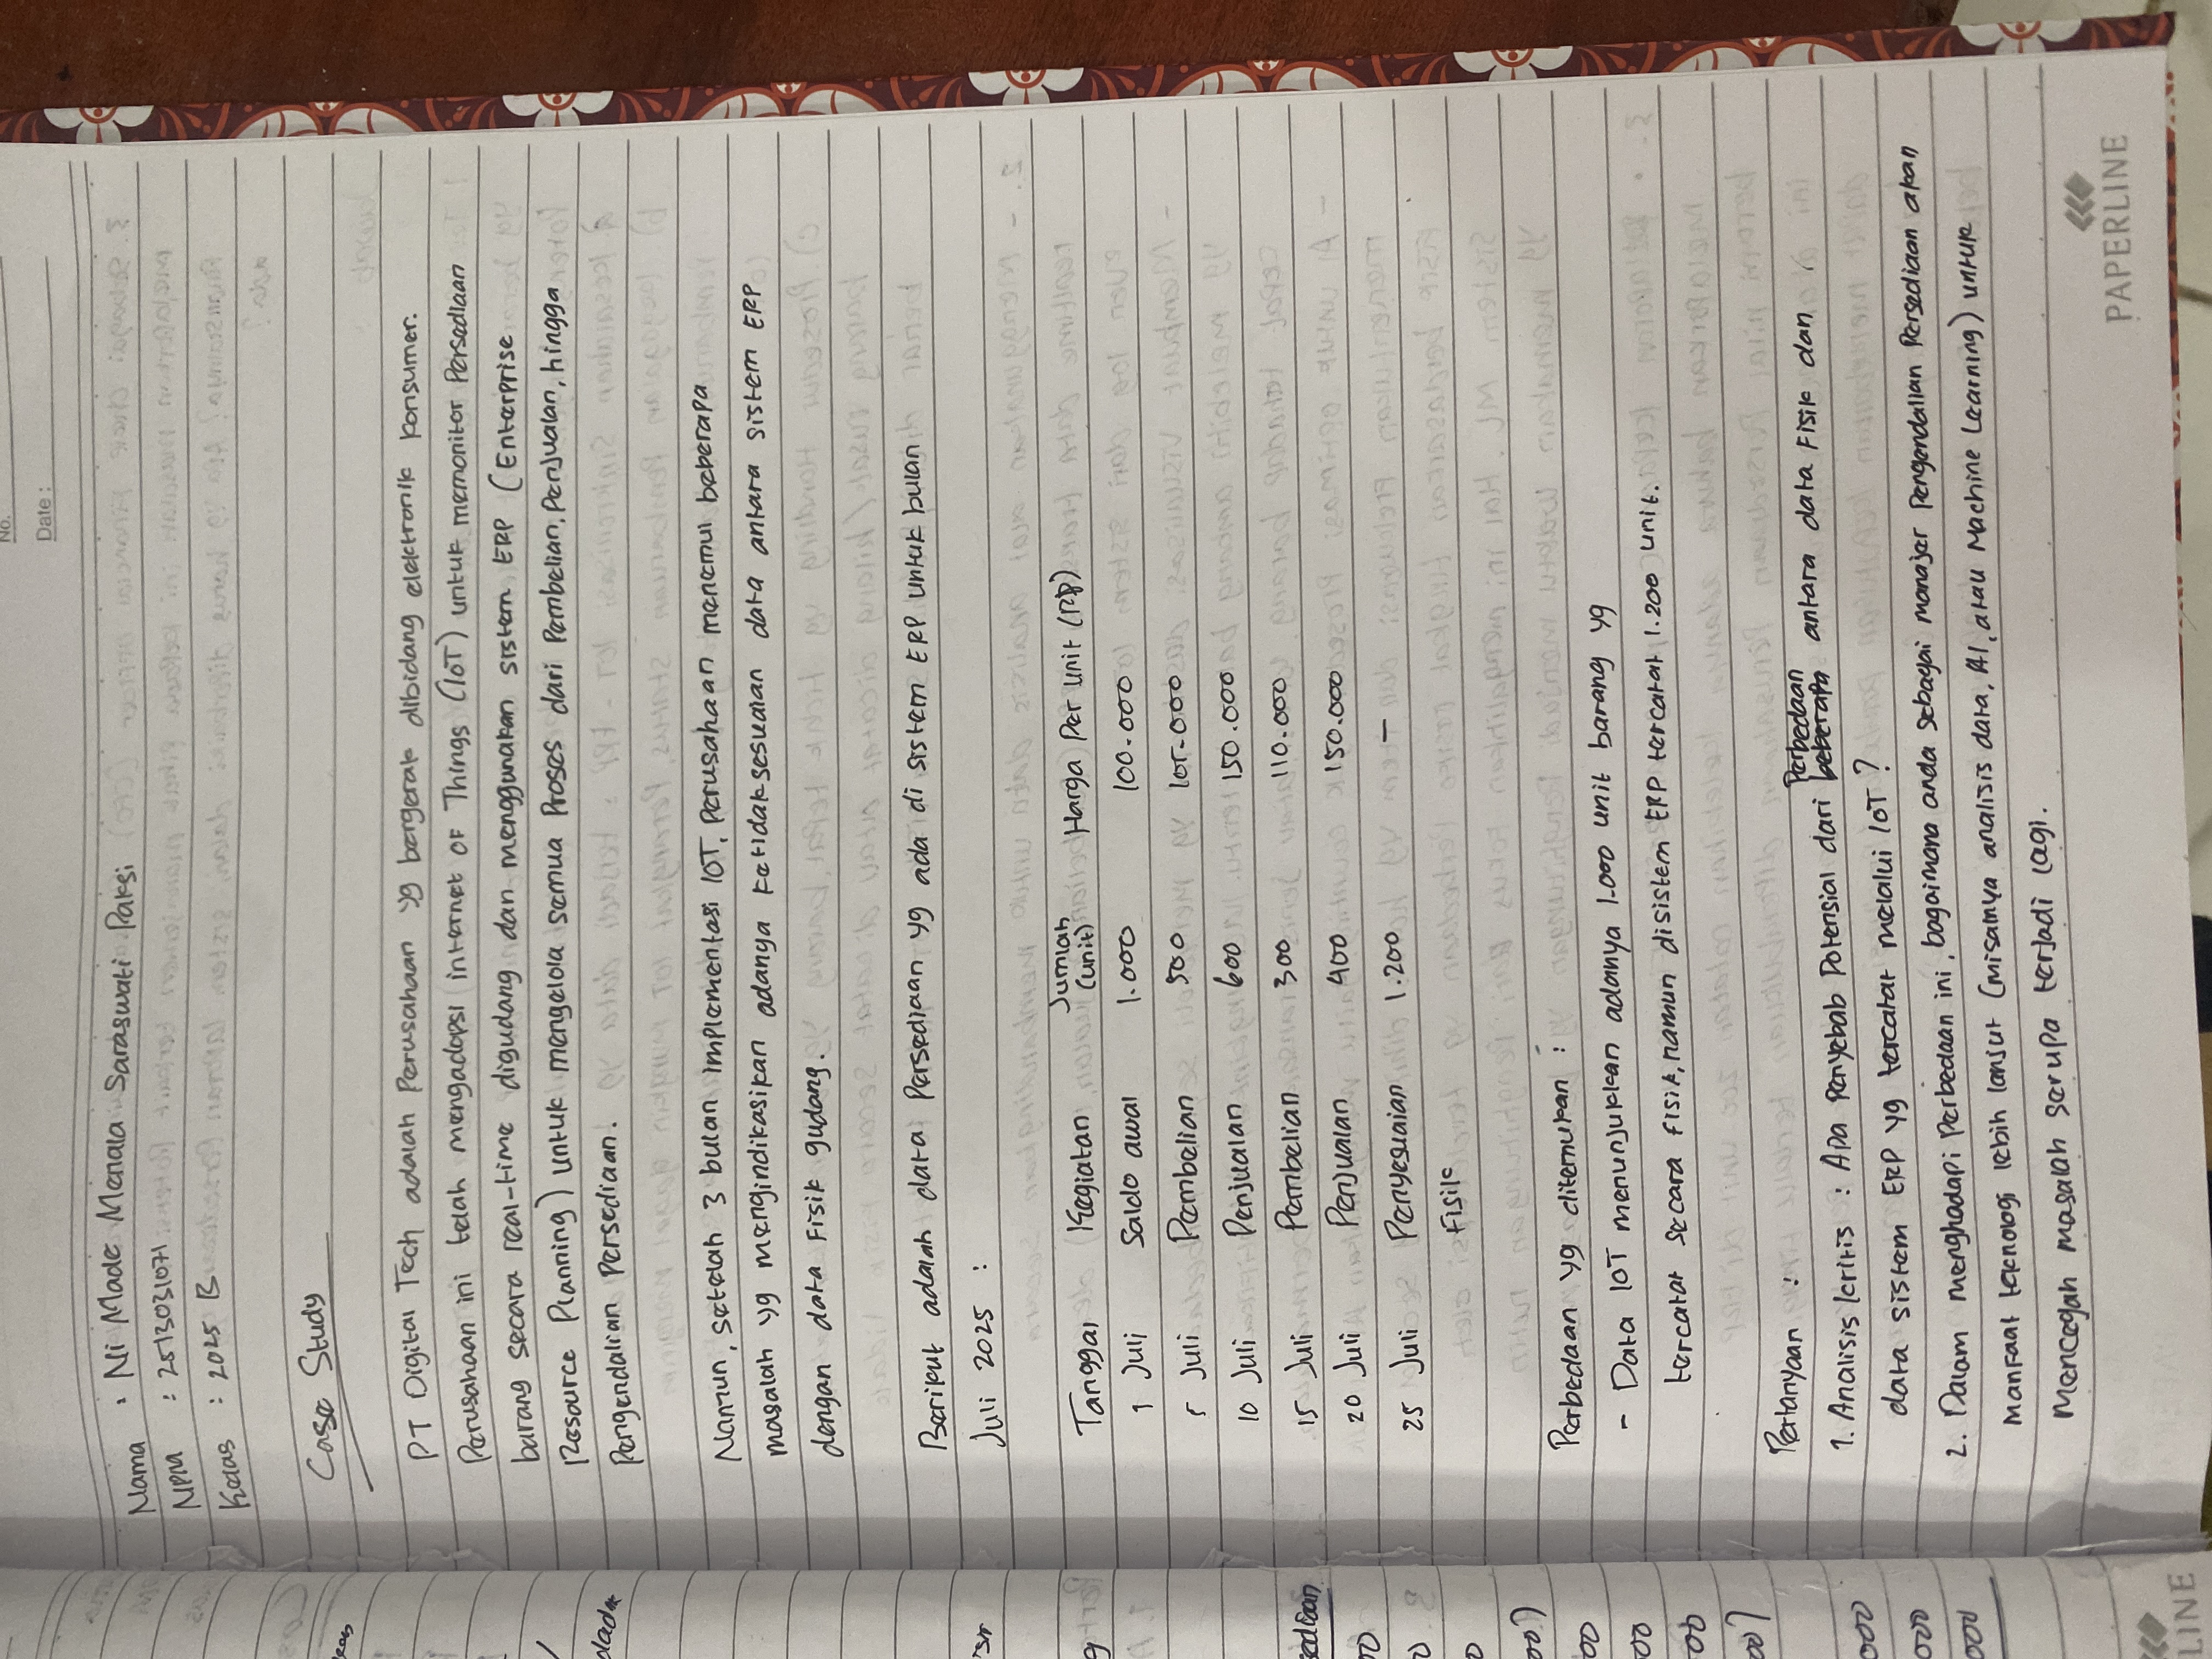 No.
Date :
Nama : Ni Made Manala Saraswati Paksi
NPM : 2513031071
Kelas : 2025 B
Case Study
PT Digital Tech adalah Perusahaan yg bergerak dibidang elektronik konsumer.
Perusahaan ini telah mengadopsi internet of Things (IoT) untuk memonitor Persediaan
barang secara real-time digudang dan menggunakan sistem ERP (Enterprise
Resource Planning) untuk mengelola semua Proses dari Pembelian, Penjualan, hingga
Pengendalian Persediaan.
Namun, setelah 3 bulan implementasi IOT, Perusahaan menemui beberapa
masalah yg mengindikasikan adanya ketidaksesuaian data antara sistem ERP
dengan data Fisik gudang.
Berikut adalah data Persediaan yg ada di sistem ERP untuk bulan
Juli 2025 :
Tanggal Kegiatan Jumlah (unit) Harga Per unit (RP)
1 Juli Saldo awal 1.000 100.000
5 Juli Pembelian 500 105.000
10 Juli Penjualan 600 150.000
15 Juli Pembelian 300 110.000
20 Juli Penjualan 400 150.000
25 Juli Penyesuaian 1.200 -
Fisik
Perbedaan yg ditemukan :
- Data IOT menunjukkan adanya 1.000 unit barang yg
tercatat secara fisik, namun disistem ERP tercatat 1.200 unit.
Pertanyaan :
1. Analisis kritis : Apa Penyebab Potensial dari Perbedaan antara data Fisik dan
data sistem ERP yg tercatat melalui IoT ?
2. Dalam menghadapi Perbedaan ini, bagaimana anda sebagai manajer Pengendalian Persediaan akan
manfaat teknologi lebih lanjut (misalnya analisis data, AI, atau Machine Learning) untuk
mencegah masalah serupa terjadi lagi.
PAPERLINE